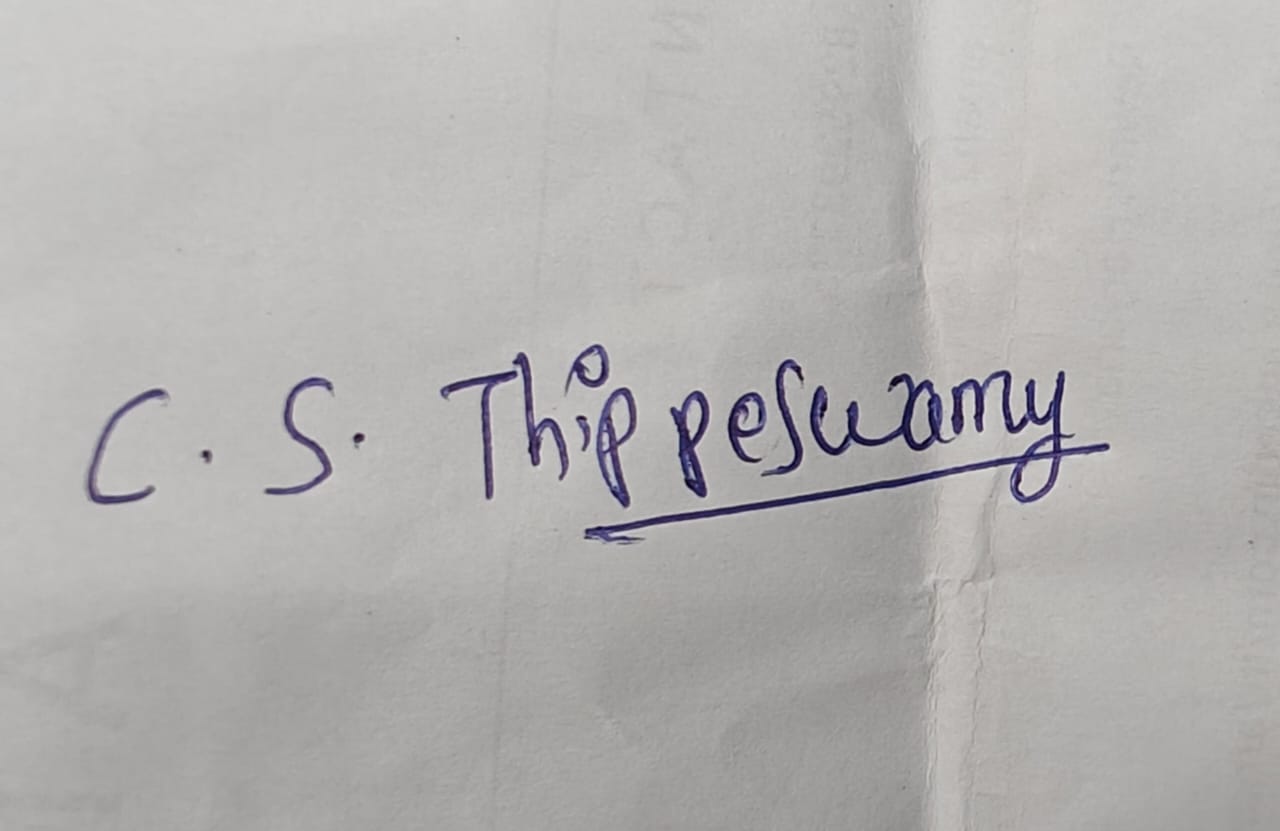 C. S. Thippeswamy